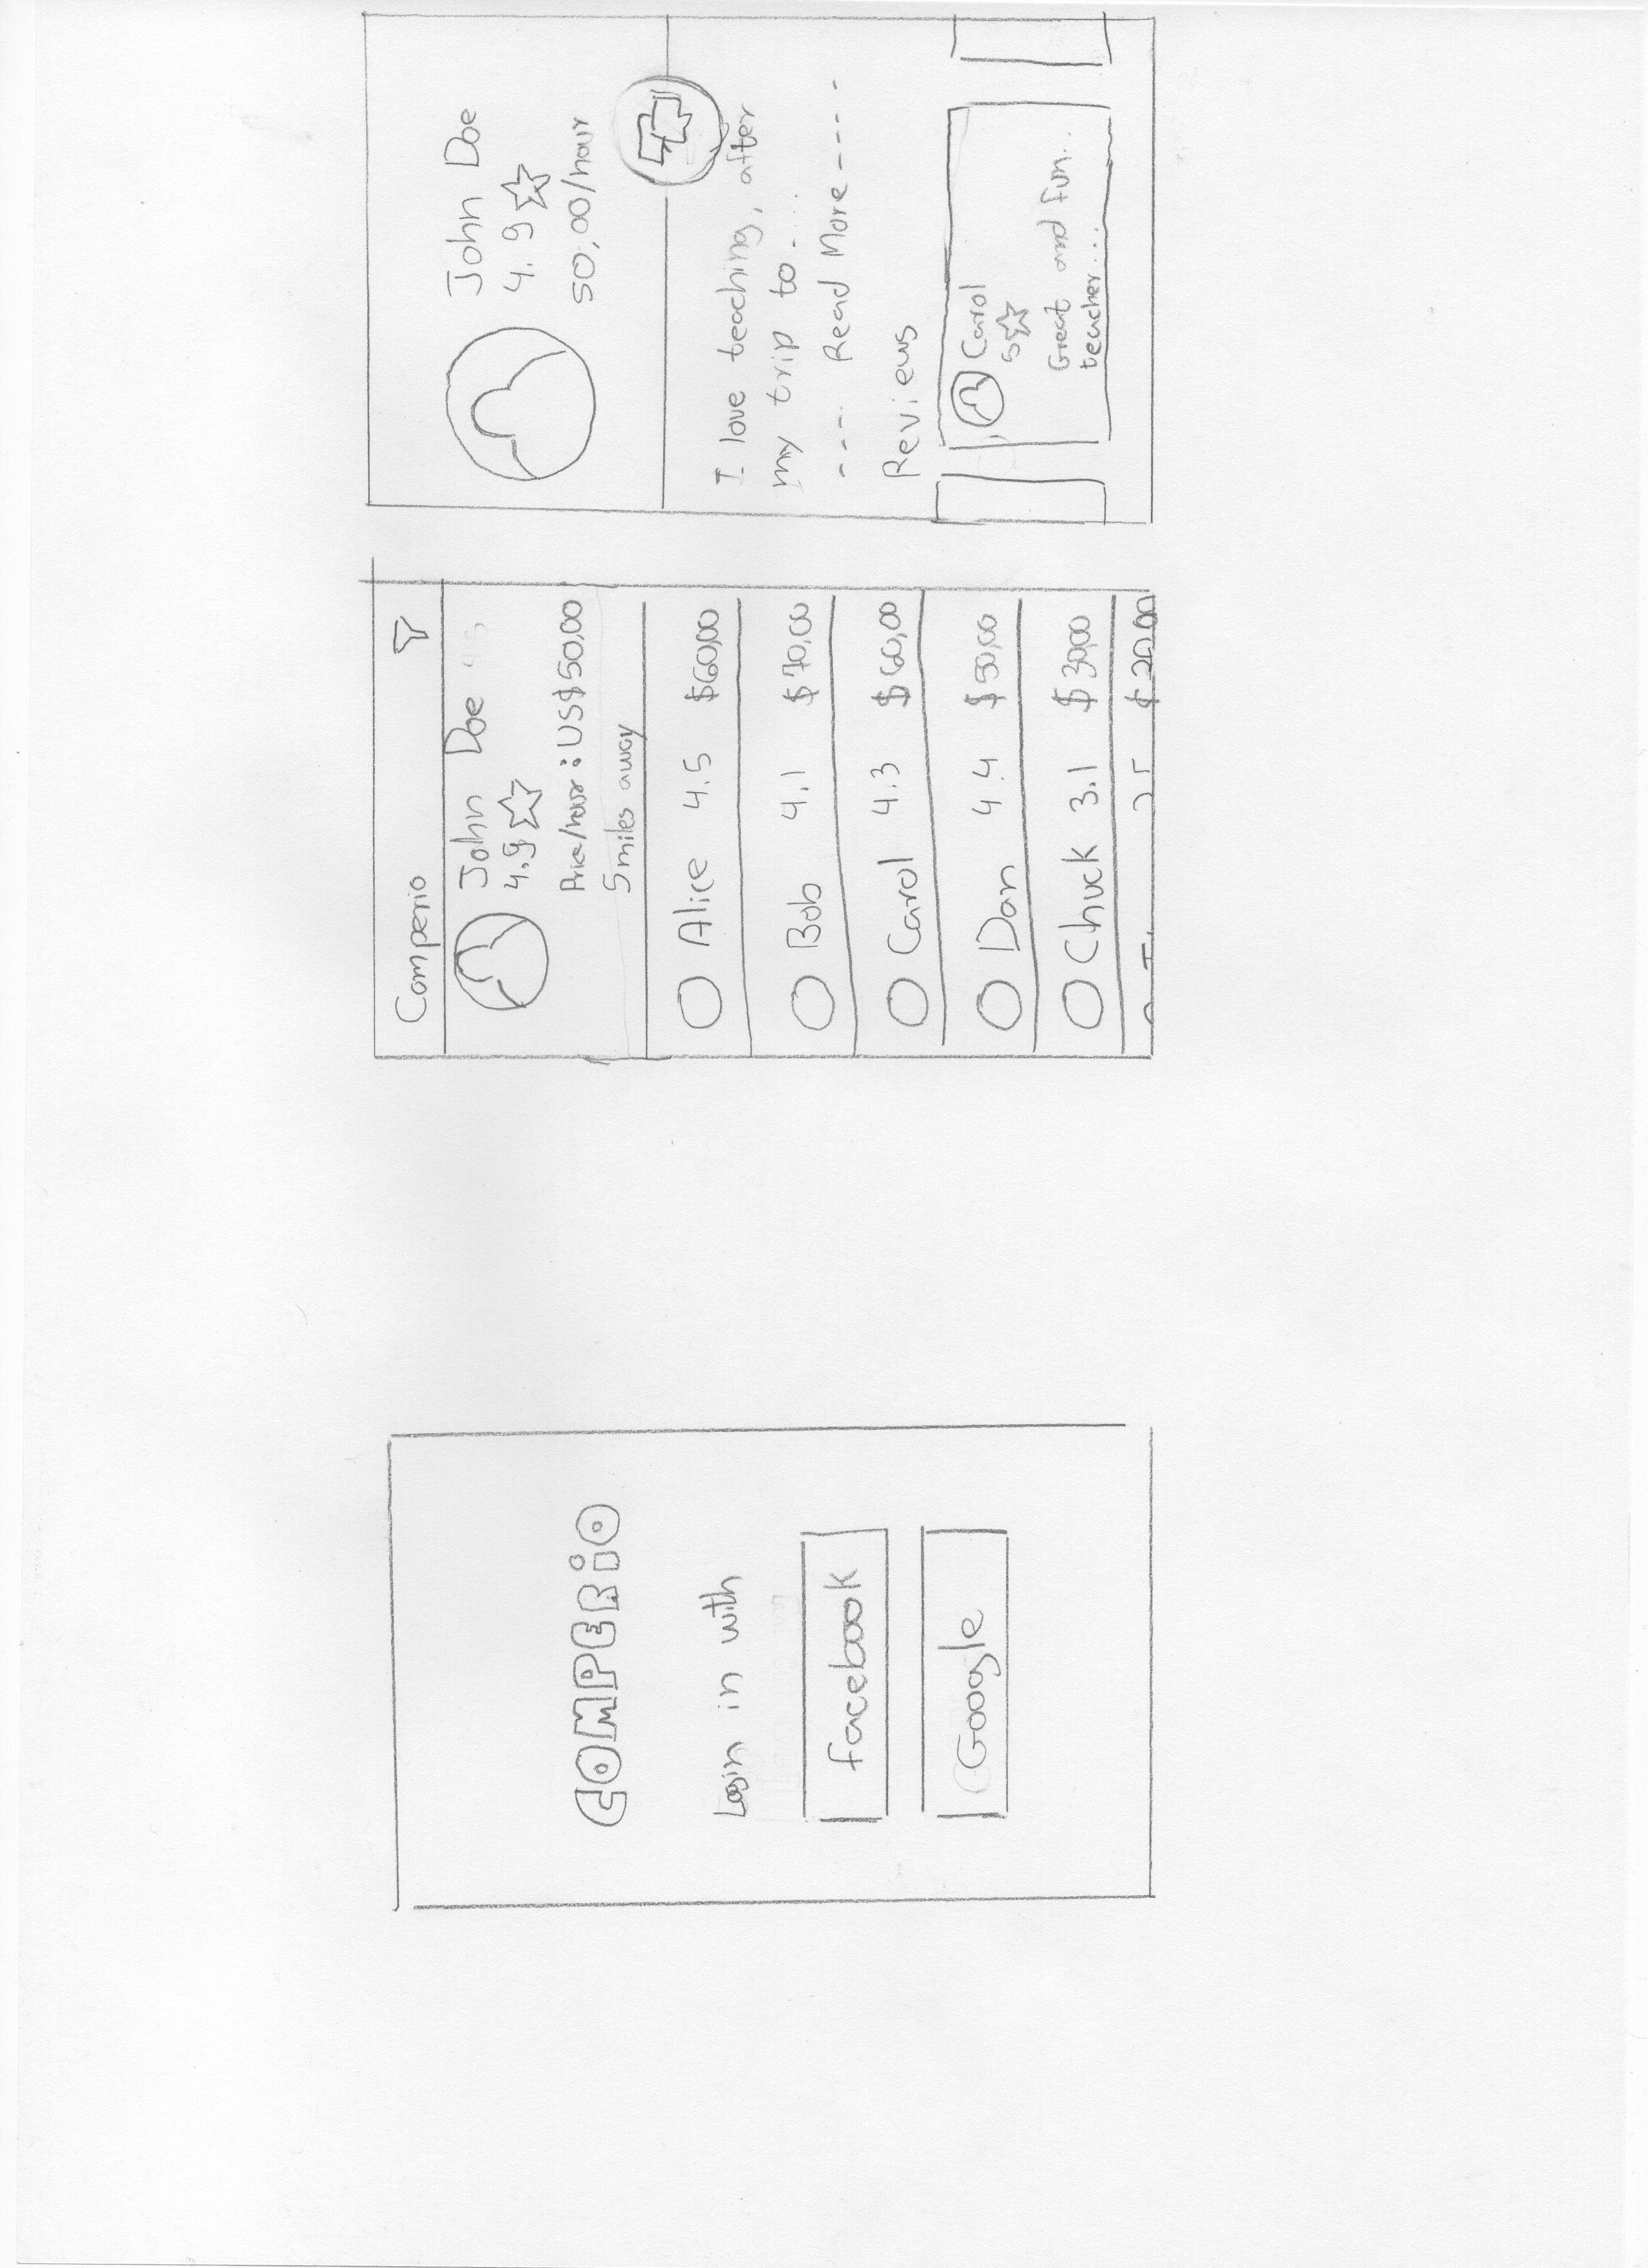 COMPERIO
Login in with
facebook
Google
Comperio
John Doe
4.9
Price/hour: US$50,00
5 miles away
Alice 4.5 $60,00
Bob 4.1 $70,00
Carol 4.3 $60,00
Dan 4.4 $50,00
Chuck 3.1 $30,00
$20,00
John Doe
4.9
50,00/hour
I love teaching, after
my trip to....
---- Read More ----
Reviews
Carol
5
Great and fun..
teacher....